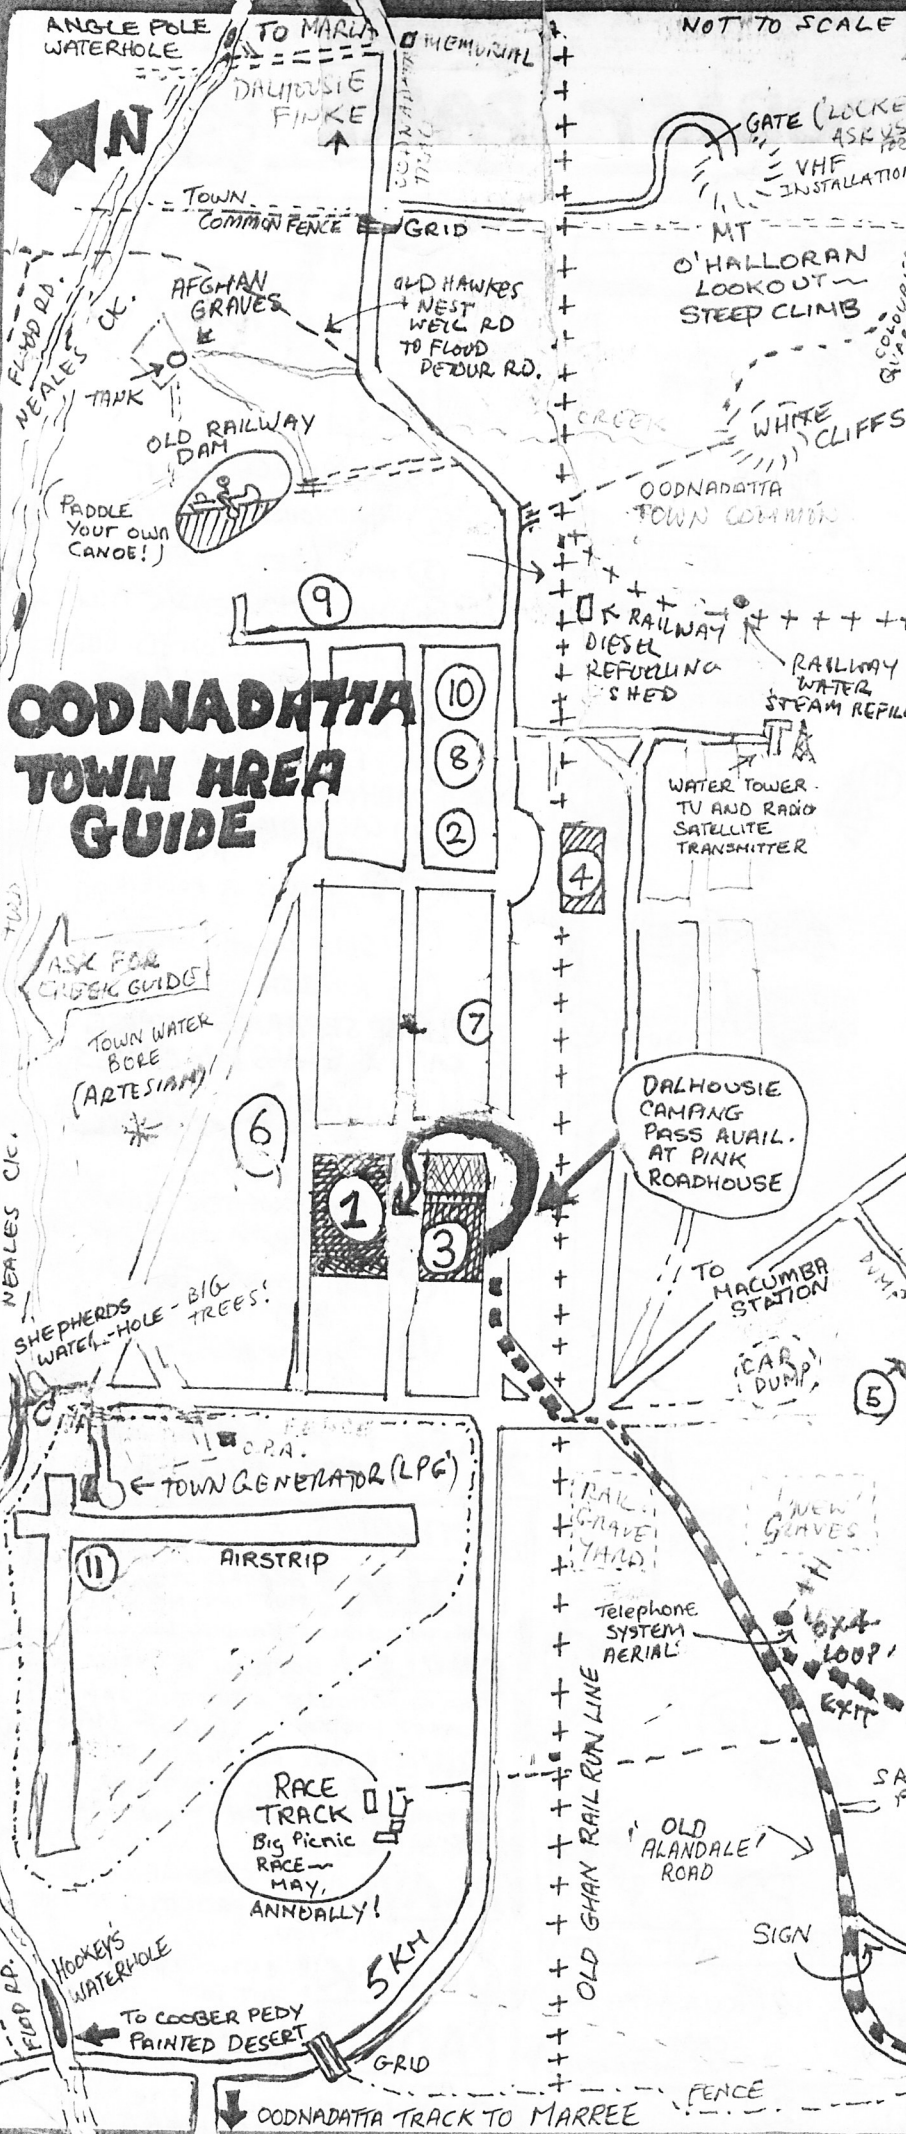 ANGLE POLE
WATERHOLE
TO MARLA
MEMORIAL
NOT TO SCALE
DALHOUSIE
FINKE
OODNADATTA
TRACK
N
GATE (LOCKE
ASK US
FOR
VHF
INSTALLATION
TOWN
COMMON FENCE
GRID
MT
O'HALLORAN
LOOKOUT~
STEEP CLIMB
FLOOD RD.
NEALES CK.
AFGHAN
GRAVES
OLD HAWKES
NEST
WELL RD
TO FLOOD
DETOUR RD.
TANK
OLD RAILWAY
DAM
CREEK
WHITE
CLIFFS
(PADDLE
YOUR OWN
CANOE!)
OODNADATTA
TOWN COMMON
9
RAILWAY
DIESEL
REFUELLING
SHED
RAILWAY
WATER
STEAM REFILL
OODNADATTA
TOWN AREA
GUIDE
10
8
2
WATER TOWER.
TV AND RADIO
SATELLITE
TRANSMITTER
4
ASK FOR
CREEK GUIDE
TOWN WATER
BORE
(ARTESIAN)
7
DALHOUSIE
CAMPING
PASS AVAIL.
AT PINK
ROADHOUSE
6
1
3
NEALES CK.
TO
MACUMBA
STATION
DUMP
SHEPHERDS
WATER-HOLE - BIG
TREES!
CAR
DUMP
5
FENCE
O.P.A.
TOWN GENERATOR (LPG)
AIRSTRIP
11
RAIL
GRAVE
YARD
'NEW'
GRAVES
Telephone
SYSTEM
AERIAL
'OX4
LOOP'
EXIT
RACE
TRACK
Big Picnic
RACE~
MAY,
ANNUALLY!
OLD GHAN RAIL RUN LINE
'OLD
ALANDALE'
ROAD
SIGN
5KM
HOOKEY'S
WATERHOLE
TO COOBER PEDY
PAINTED DESERT
GRID
FENCE
OODNADATTA TRACK TO MARREE